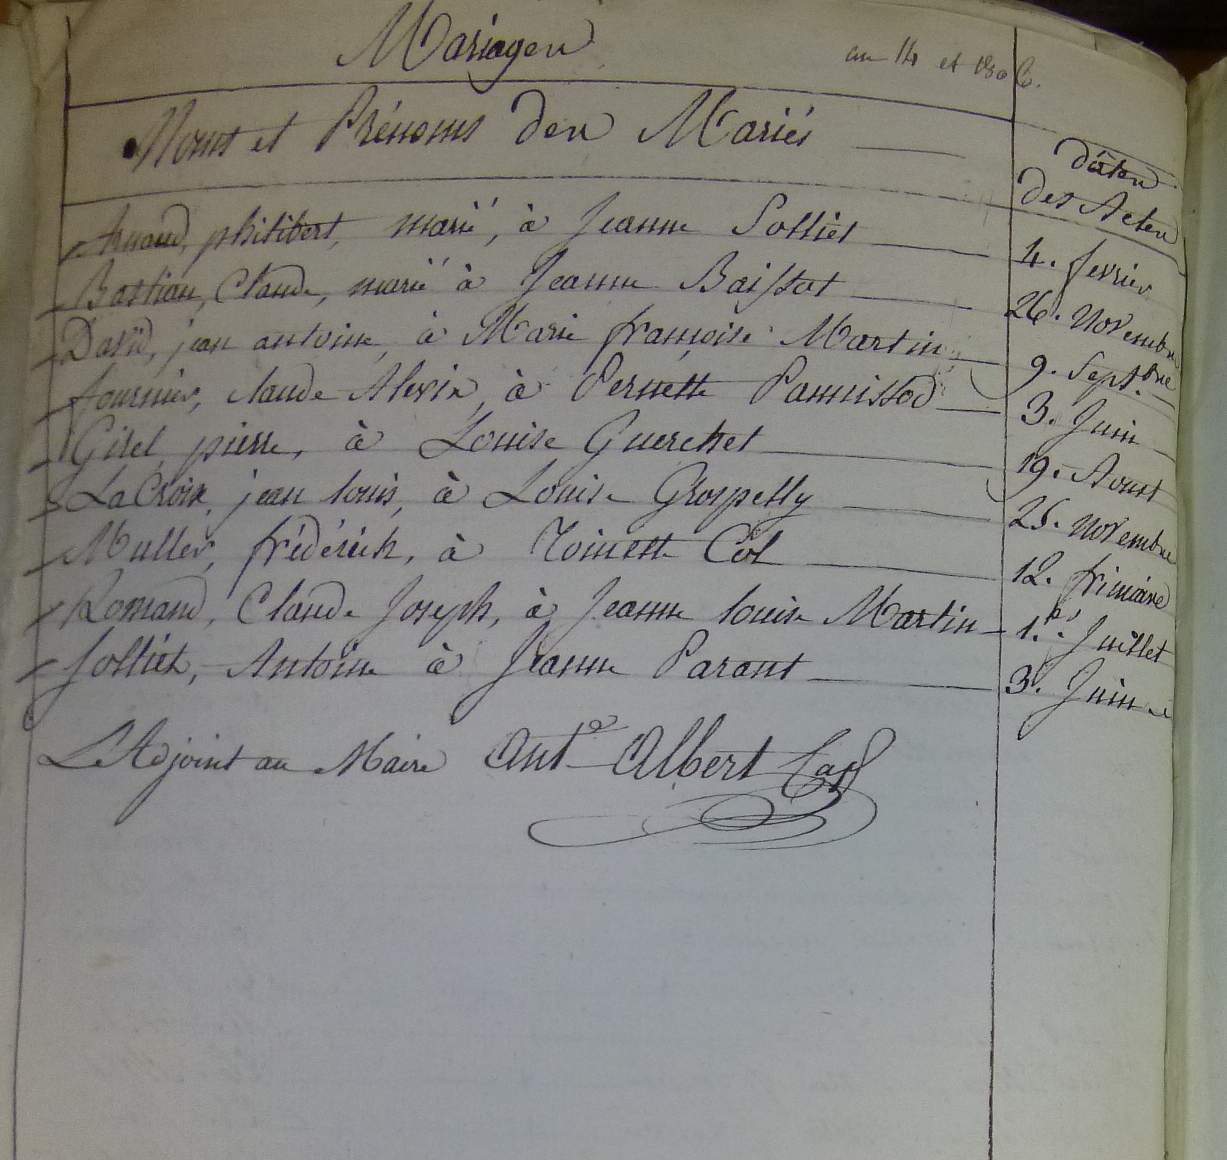 Mariages
an 14 et 1806.
Noms et Prénoms des Mariés
dâtes
des Actes
Arnaud, philibert, marié, à Jeanne Solliét 4. fevrier
Bastian, Claude, marié à Jeanne Baissat 26. Novembre
David, jean antoine, à Marie françoise Martin 9. Septbre
fournier, claude Alexix, à Pernette Pannissod 3. Juin
Girel, pierre, à Louise Guerchet 19. Aoust
LaCroix, jean louis, à Louise Grospelly 25. Novembre
Muller, frédérich, à Toinette Col 12. frimaire
Romand, Claude Joseph, à Jeanne louise Martin 1.er Juillet
Solliét, Antoine à Jeanne Parant 3. Juin
L'Adjoint au Maire Ant.e Albert